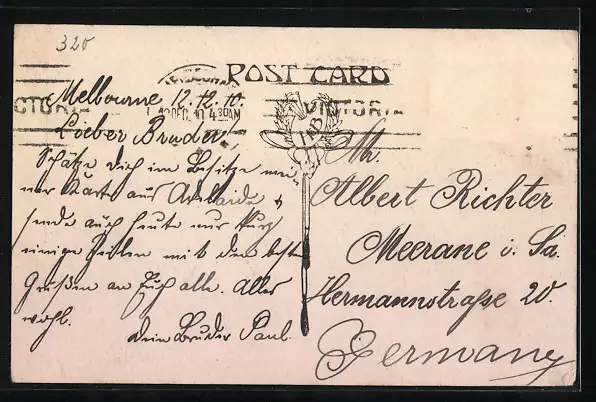 320
POST CARD
MELBOURNE
VICTORIA
VICTORIA
13 DEC 10 4 30AM
Melbourne 12.12.10.
Lieber Bruder!
Schätze dich im Besitze mei
ner Karte aus Adelaide &
sende auch heute nur kurz
einige Zeilen mit den besten
Grüßen an Euch alle. Alles
wohl.
Dein Bruder Paul.
Mr.
Albert Richter
Meerane i. Sa.
Hermannstraße 20.
Germany